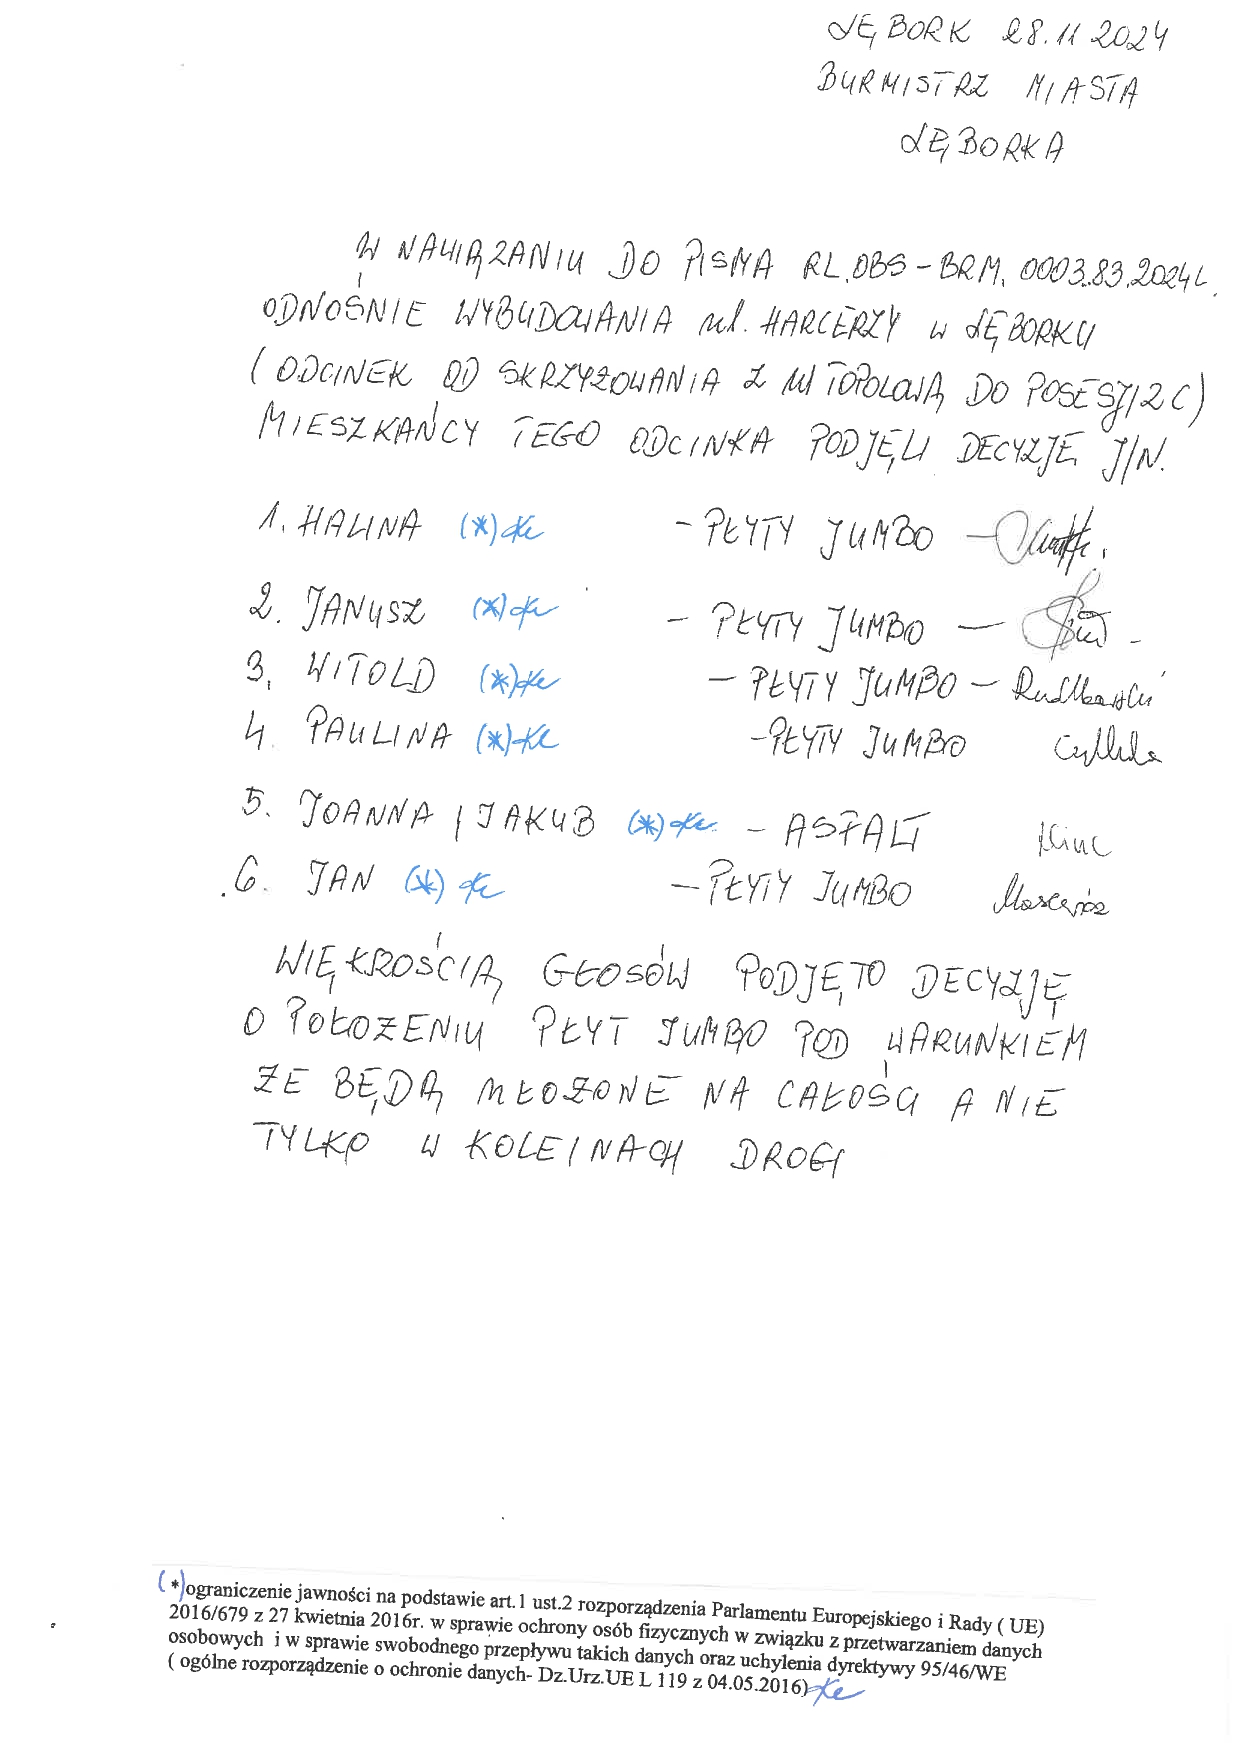 ŁĘBORK 28.11 2024
BURMISTRZ MIASTA
ŁĘBORKA
W NAWIĄZANIU DO PISMA RL.OBS-BRM.0003.83.2024
ODNOŚNIE WYBUDOWANIA ul. HARCERZY w ŁĘBORKU
( ODCINEK OD SKRZYŻOWANIA Z ul TOPOLOWĄ DO POSESJI 2C)
MIESZKAŃCY TEGO ODCINKA PODJĘLI DECYZJĘ J/N.
1. HALINA (*) - PŁYTY JUMBO -
2. JANUSZ (*) - PŁYTY JUMBO -
3. WITOLD (*) - PŁYTY JUMBO -
4. PAULINA (*) - PŁYTY JUMBO
5. JOANNA I JAKUB (*) - ASFALT
6. JAN (*) - PŁYTY JUMBO
WIĘKROŚCIĄ GŁOSÓW PODJĘTO DECYZJĘ
O POŁOŻENIU PŁYT JUMBO POD WARUNKIEM
ŻE BĘDĄ WŁOŻONE NA CAŁOŚCI A NIE
TYLKO W KOLEINACH DROGI
(*)ograniczenie jawności na podstawie art.1 ust.2 rozporządzenia Parlamentu Europejskiego i Rady ( UE)
2016/679 z 27 kwietnia 2016r. w sprawie ochrony osób fizycznych w związku z przetwarzaniem danych
osobowych i w sprawie swobodnego przepływu takich danych oraz uchylenia dyrektywy 95/46/WE
( ogólne rozporządzenie o ochronie danych- Dz.Urz.UE L 119 z 04.05.2016)